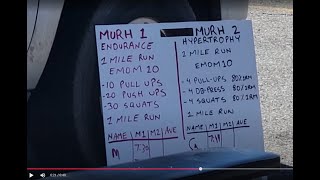 MURH 1
ENDURANCE
1 MILE RUN
EMOM 10
-10 PULL UPS
-20 PUSH UPS
-30 SQUATS
1 MILE RUN
NAME M1 M2 AVE
M 7:30
MURH 2
HYPERTROPHY
1 MILE RUN
EMOM 10
-4 PULL-UPS 80%1RM
-4 DB PRESS 80%1RM
-4 SQUATS 80%1RM
1 MILE RUN
NAME M1 M2 AVE